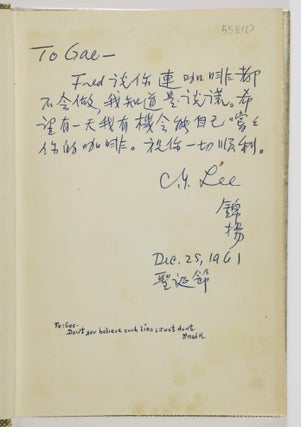 55810
To Gae—
Fred说你連咖啡都
不会做,我知道是说谎。希
望有一天我有機会能自己嚐嚐
你的咖啡。祝你一切顺利。
C.Y. Lee
錦揚
Dec. 25, 1961
聖诞節
To: Gae-
Don't you believe such lies; Just don't.